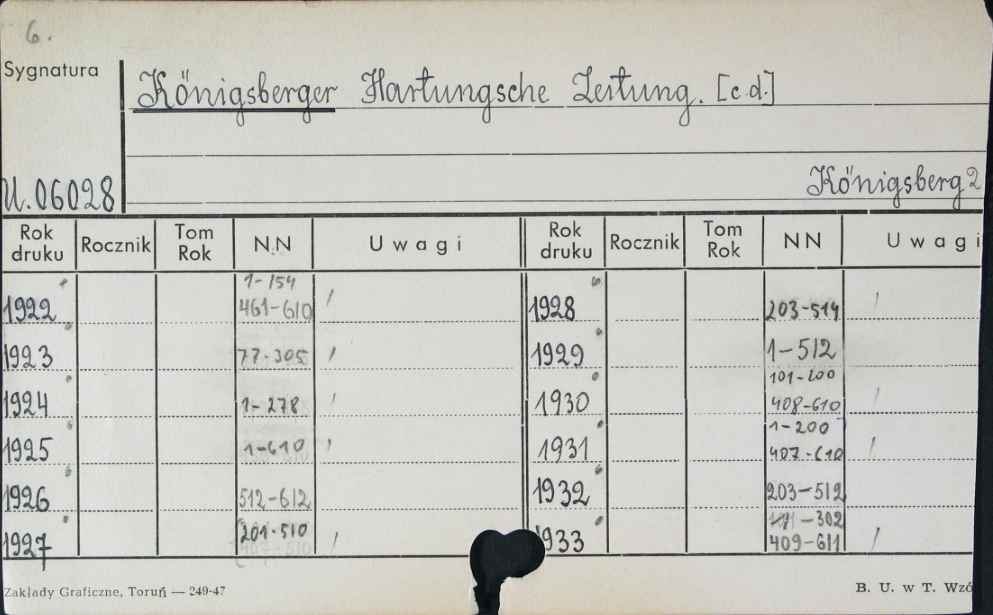 6.
Sygnatura
Königsberger Hartungsche Zeitung. [c.d.]
U.06028
Königsberg 2
Rok druku Rocznik Tom Rok N.N Uwagi Rok druku Rocznik Tom Rok NN Uwagi
1922 1-154 461-610 1928 203-514
1923 77-305 1929 1-512
1924 1-278 1930 101-200 408-610
1925 1-610 1931 1-200 407-610
1926 512-612 1932 203-512
1927 201-510 1933 -302 409-611
Zakłady Graficzne, Toruń — 249-47
B. U. w T. Wzó